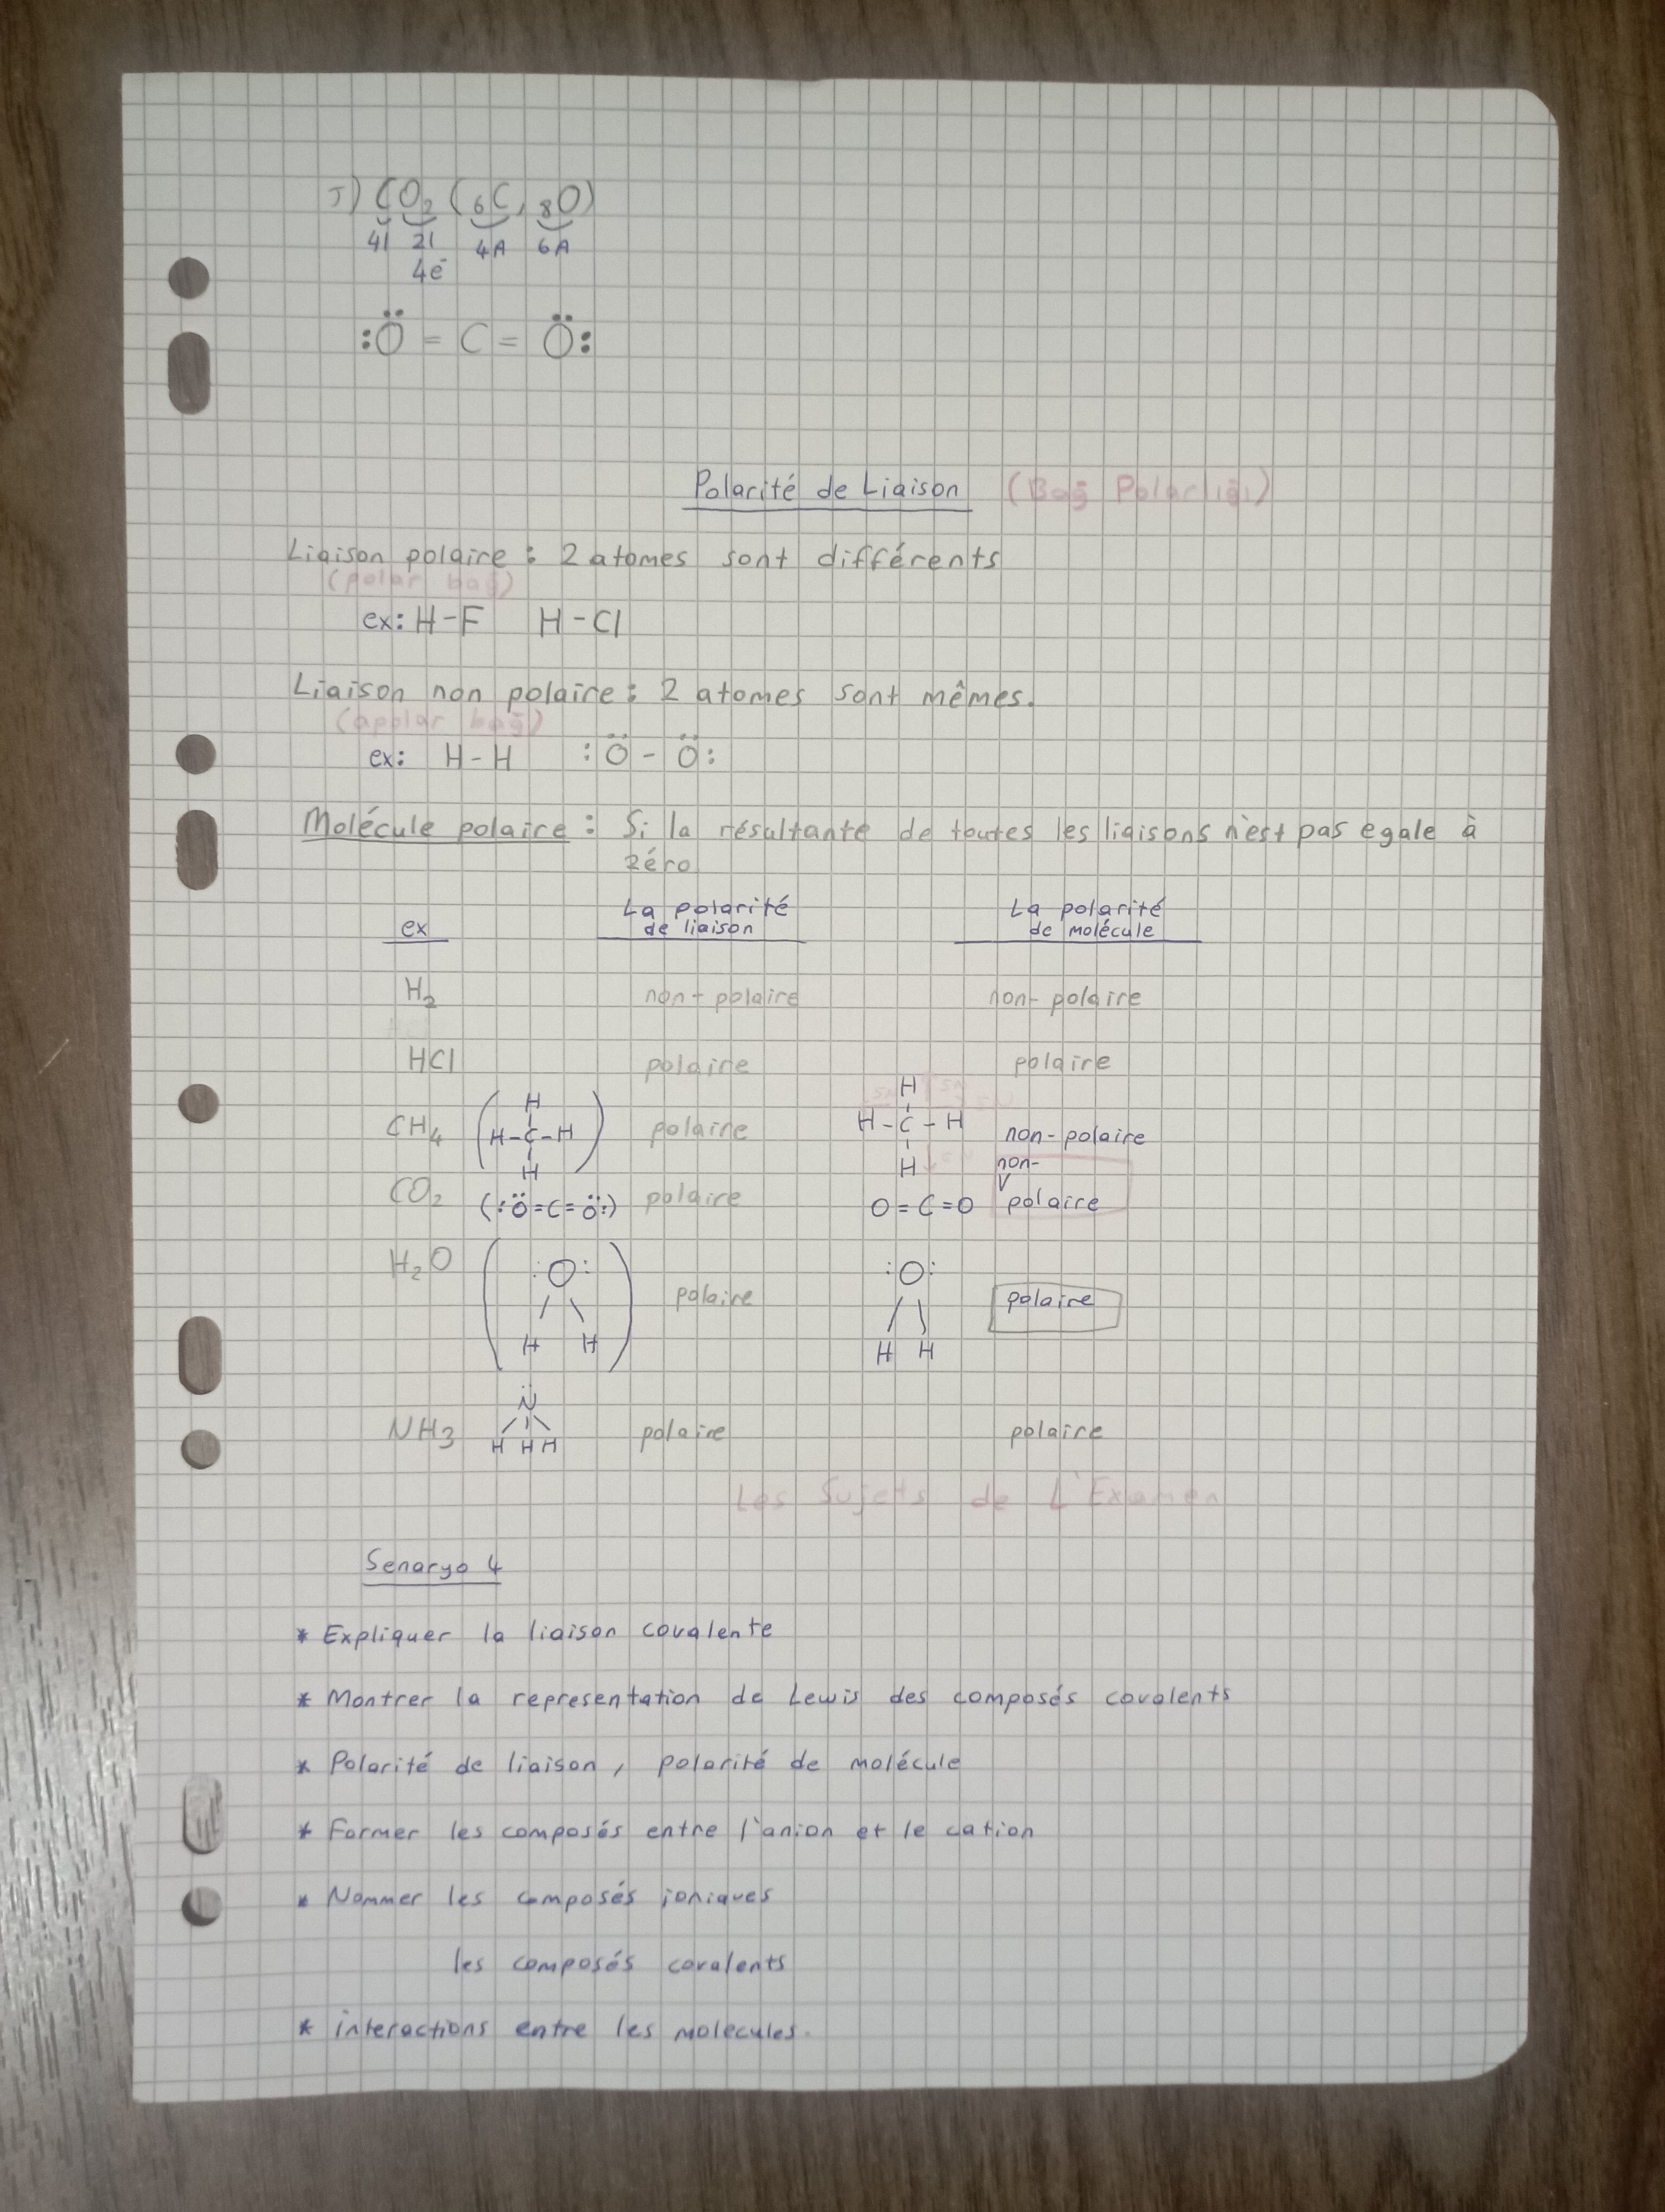 J) CO2 (6C, 8O)
4l 2l 4A 6A
4e-
:Ö = C = Ö:
Polarité de Liaison (Bağ Polarlığı)
Liaison polaire : 2 atomes sont différents
(polar bağ)
ex: H-F H-Cl
Liaison non polaire : 2 atomes sont mêmes.
(apolar bağ)
ex: H-H :Ö - Ö:
Molécule polaire : Si la résultante de toutes les liaisons n'est pas egale à
zéro
ex La polarité de liaison La polarité de molécule
H2 non-polaire non-polaire
HCl polaire polaire
H H
CH4 (H-C-H) polaire H-C-H non-polaire
H H
non-
CO2 (:Ö=C=Ö:) polaire O=C=O polaire
H2O :O: polaire :O: polaire
H H H H
N̈
NH3 H H H polaire polaire
Les Sujets de L'Examen
Senaryo 4
* Expliquer la liaison covalente
* Montrer la representation de Lewis des composés covalents
* Polarité de liaison, polarité de molécule
* Former les composés entre l'anion et le cation
* Nommer les composés ioniques
les composés covalents
* interactions entre les molecules.